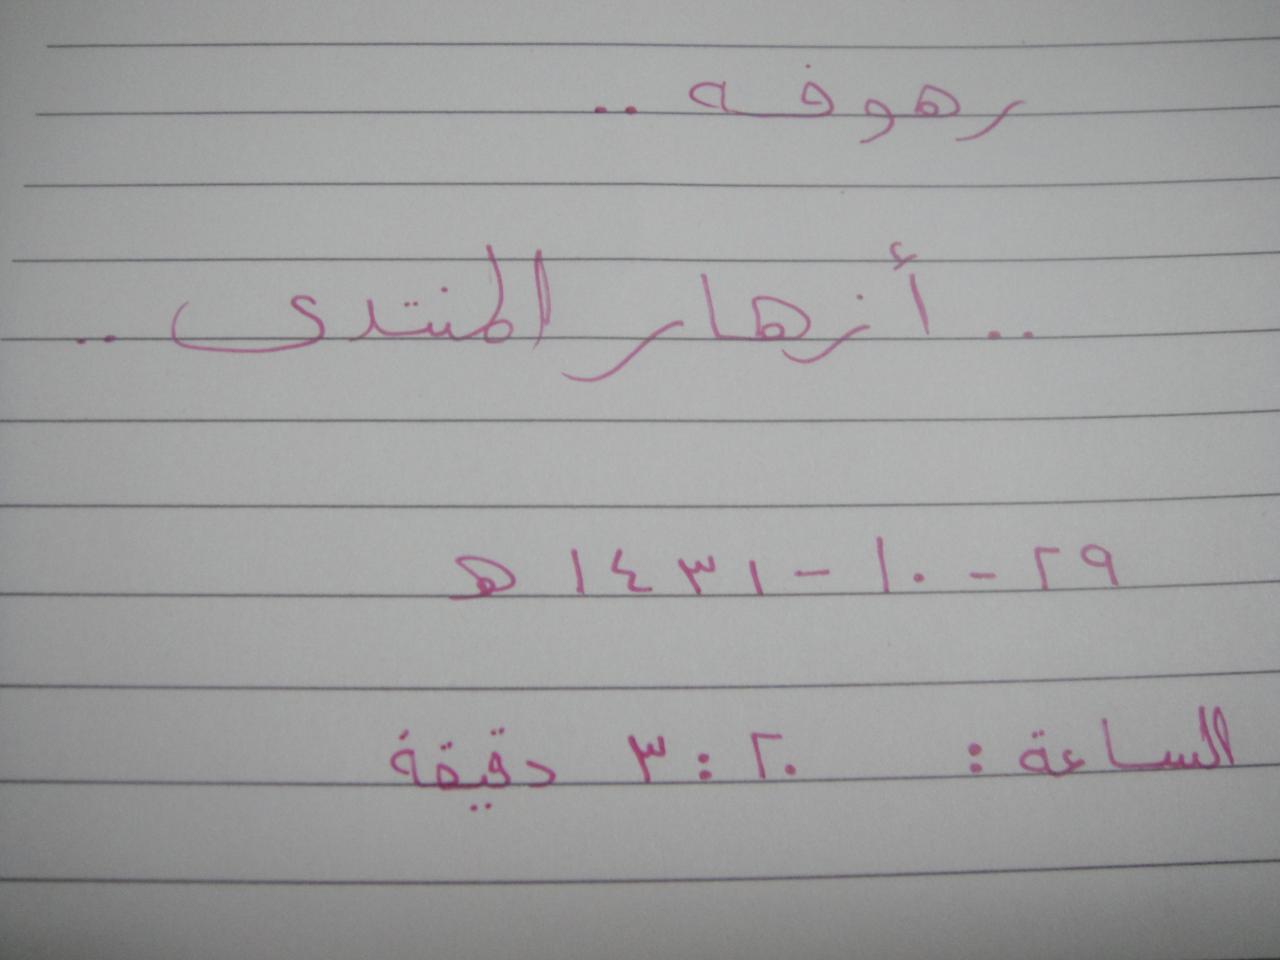 رهوفه ..
.. أزهار المنتدى ..
٢٩ - ١٠ - ١٤٣١ هـ
الساعة : ٣:٢٠ دقيقة